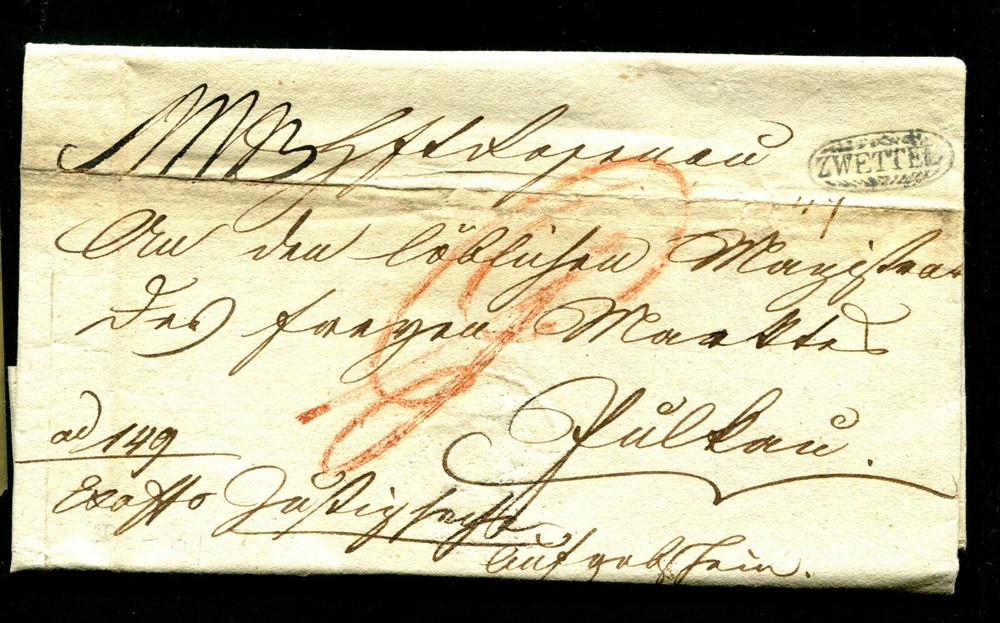 ZWETTEL
An den löblichen Magistrat
des freyen Marktes
Pulkau.
ad 149
Exoffo Justizsache
Aufgabsschein.